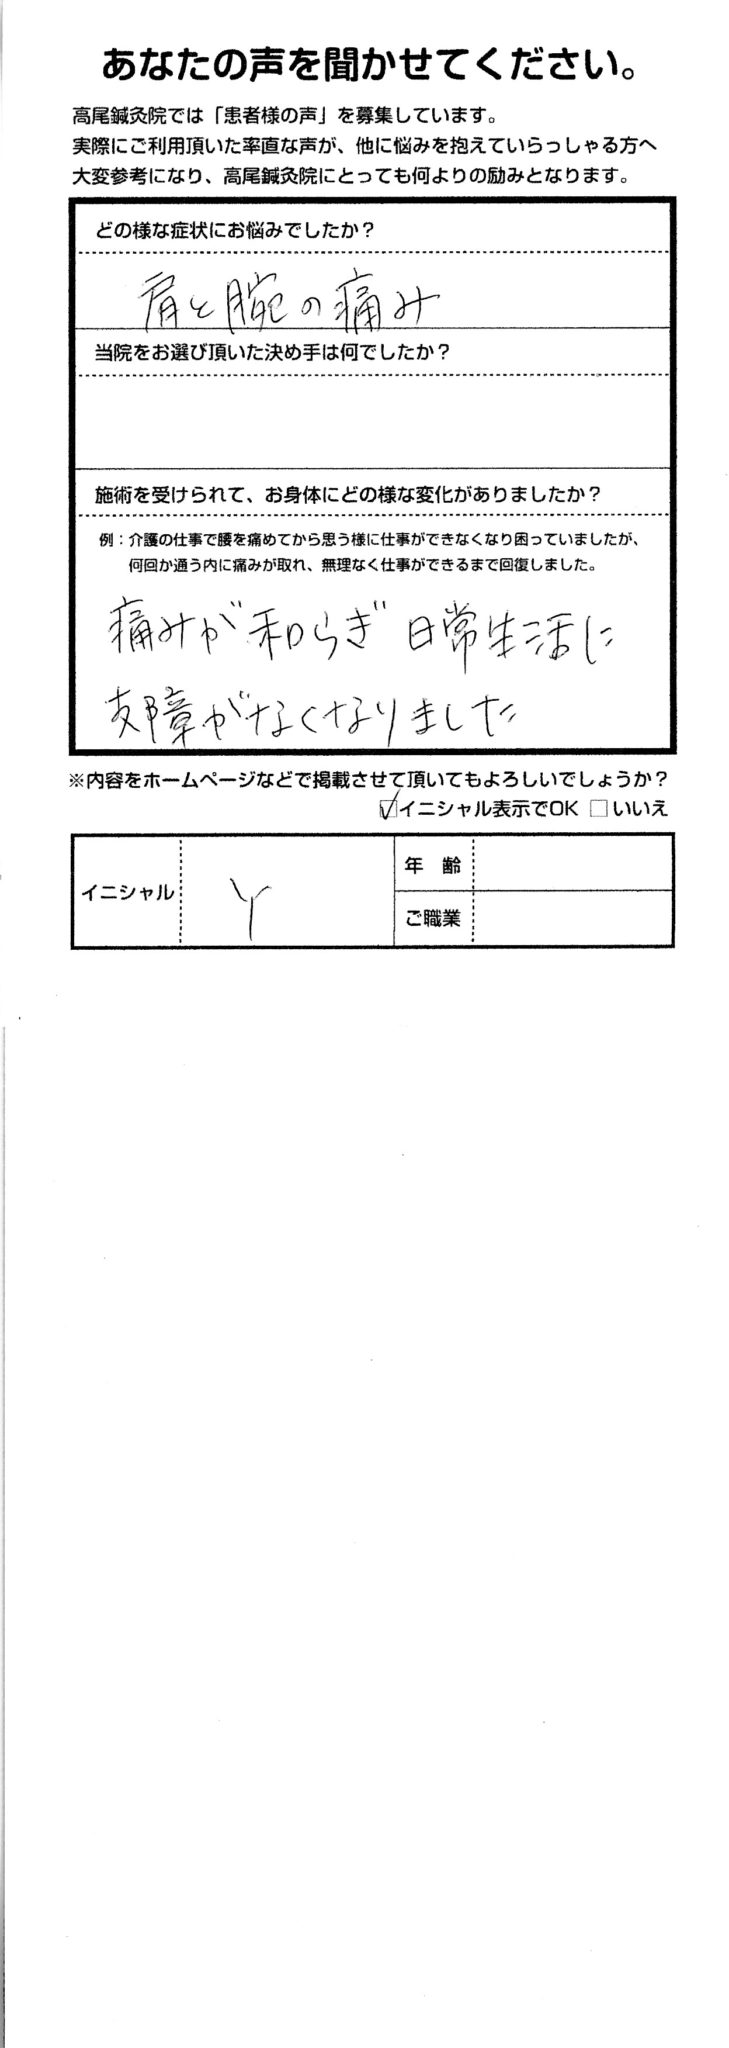 あなたの声を聞かせてください。
高尾鍼灸院では「患者様の声」を募集しています。
実際にご利用頂いた率直な声が、他に悩みを抱えていらっしゃる方へ
大変参考になり、高尾鍼灸院にとっても何よりの励みとなります。
どの様な症状にお悩みでしたか？
肩と腕の痛み
当院をお選び頂いた決め手は何でしたか？
施術を受けられて、お身体にどの様な変化がありましたか？
例：介護の仕事で腰を痛めてから思う様に仕事ができなくなり困っていましたが、
何回か通う内に痛みが取れ、無理なく仕事ができるまで回復しました。
痛みが和らぎ 日常生活に
支障がなくなりました
※内容をホームページなどで掲載させて頂いてもよろしいでしょうか？
☑イニシャル表示でOK □いいえ
イニシャル Y
年 齢
ご職業